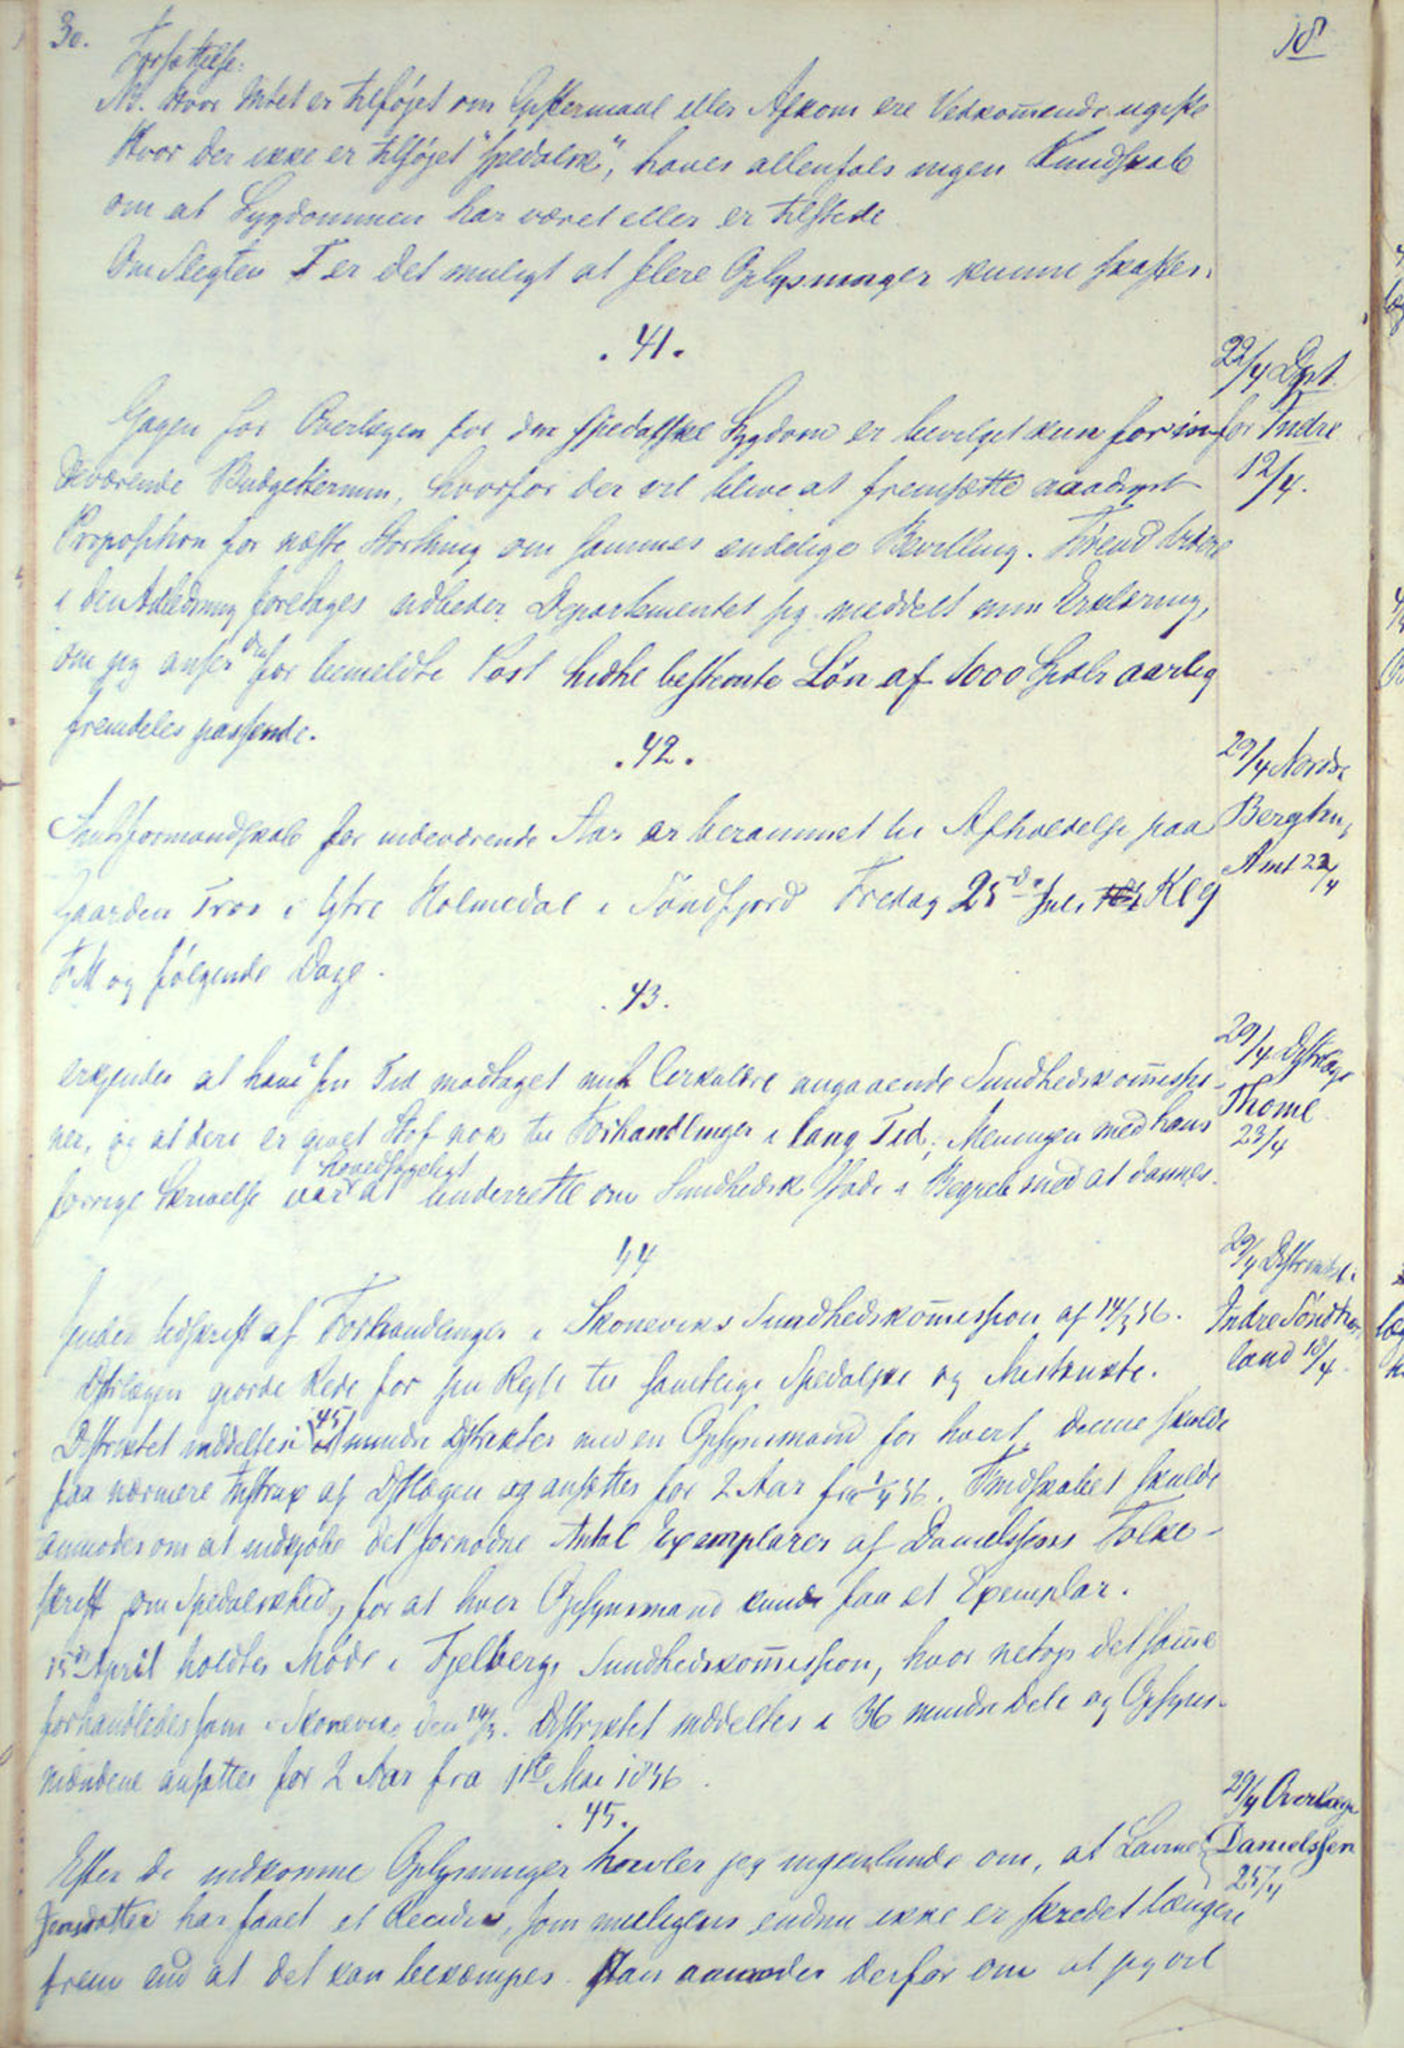 30.
18
Forsættelse:
NB. Hvor Intet er tilføjet om Gyftermaal eller Afkom ere Vedkom̅ende ugifte
Hvor der ikke er tilføjet "spedalsk", haves allenfals ingen Kundskab
om at Sygdommen har været eller er tilstede.
Om Slegten I er det muligt at flere Oplysninger kunne skaffes.
. 41 .
22/4 Dpt.
for Indre
12/4.
Gagen for Overlægen for den spedalske Sygdom er bevilget kun for in-
deværende Budgettermin, hvorfor der vil blive at fremsætte naadigst
Proposition for næste Storthing om sammes endelige Bevilling. Førend videre
i den Anledning foretages udbeder Departementet sig meddelt min Erklæring,
om jeg anser den for bemeldte Post hidtil bestemte Løn af 1000 Spdlr aarlig
fremdeles passende.
. 42 .
29/4 Nordre
Bergenh,
Amt 22/4
Amtsformandskab for indeværende Aar er berammet til Afholdelse paa
Gaarden Træs i Ytre Holmedal i Søndfjord Fredag 25de Juli Kl 9
FM og følgende Dage.
. 43 .
29/4 Distrlæge
Thome
23/4
erkjender at have i sin Tid modtaget mit Cirkulære angaaende Sundhedskom̅issio-
ner, og at deri er givet Stof nok til Forhandlinger i lang Tid; Meningen med hans
forrige Skrivelse var hovedsageligt at underrette om Sundhedsk stode i Begreb med at dannes.
44
29/4 Distriktsl.
Indre Søndhor,
land 18/4.
sender Udskrift af Forhandlinger i Skoneviks Sundhedskom̅ission af 14/3 56.
Distrlægen gjorde Rede for sin Rejse til samtlige Spedalske og Mistænkte.
Distriktet inddeltes i 45 mindre Distrikter med en Opsynsmand for hvert, denne skulde
faa nærmere Instrux af Distlægen og ansættes for 2 Aar fra 1/4 56. Formdskabet skulde
anmodes om at indkjøbe det fornødne Antal Exemplarer af Danielssens Folke-
skrift om Spedalskhed, for at hver Opsynsmand kunde faa et Exemplar.
15de April holdtes Møde i Fjelbergs Sundhedskom̅ission, hvor netop det sam̅e
forhandledes som i Skonevik, den 14/3. Distriktet inddeltes i 36 mindre Dele og Opsyns-
mændene ansattes for 2 Aar fra 1ste Mai 1856.
. 45 .
29/4 Overlæge
Danielssen
25/4
Efter de indkomne Oplysninger tvivler jeg ingenlunde om, at
Jensdatter har faaet et Recidiv, som muligens endnu ikke er skredet længere
frem end at det kan bekæmpes. Han anmoder derfor om at jeg vil